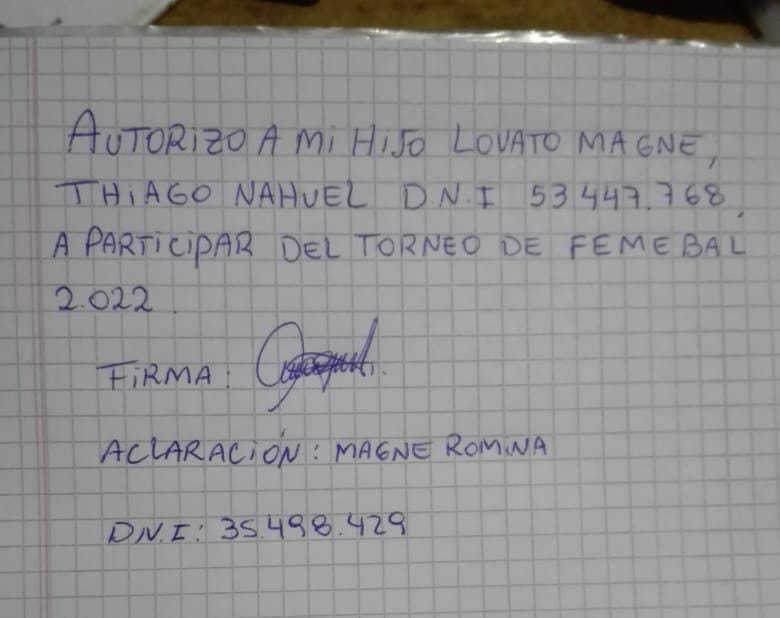 AUTORIZO A MI HIJO LOVATO MAGNE,
THIAGO NAHUEL D.N.I 53 447.768,
A PARTICIPAR DEL TORNEO DE FEMEBAL
2.022.
FIRMA:
ACLARACIÓN: MAGNE ROMINA
D.N.I: 35.498.429